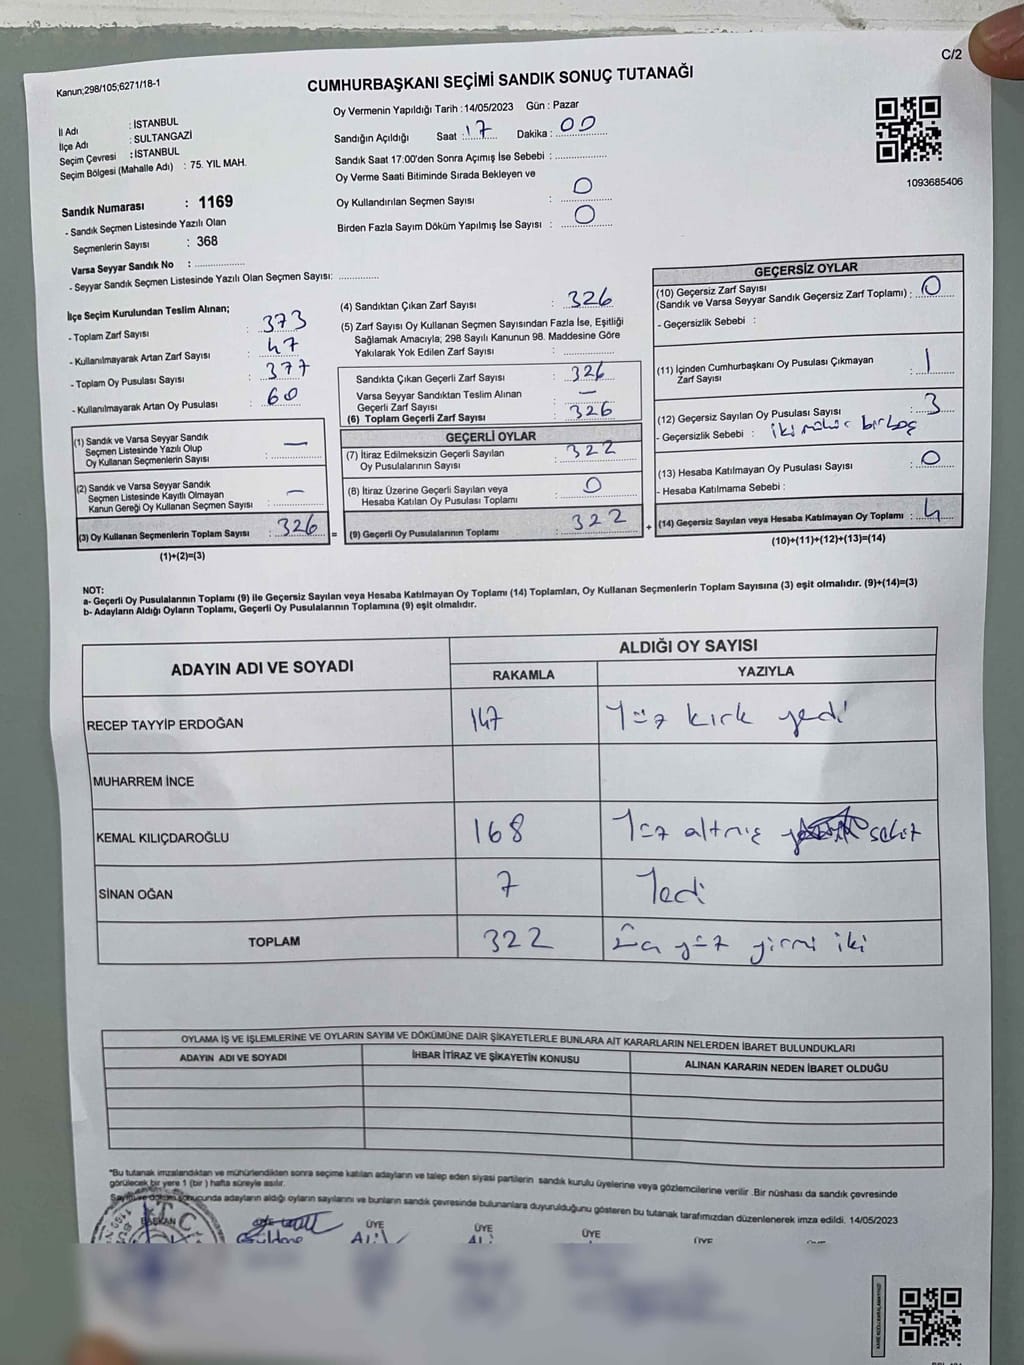 Kanun;298/105;6271/18-1
C/2
CUMHURBAŞKANI SEÇİMİ SANDIK SONUÇ TUTANAĞI
İl Adı : İSTANBUL
İlçe Adı : SULTANGAZİ
Seçim Çevresi : İSTANBUL
Seçim Bölgesi (Mahalle Adı) : 75. YIL MAH.
Sandık Numarası : 1169
- Sandık Seçmen Listesinde Yazılı Olan
Seçmenlerin Sayısı : 368
Varsa Seyyar Sandık No :
- Seyyar Sandık Seçmen Listesinde Yazılı Olan Seçmen Sayısı:
Oy Vermenin Yapıldığı Tarih :14/05/2023 Gün : Pazar
Sandığın Açıldığı Saat : 17 Dakika : 00
Sandık Saat 17:00'den Sonra Açımış İse Sebebi :
Oy Verme Saati Bitiminde Sırada Bekleyen ve
Oy Kullandırılan Seçmen Sayısı : 0
Birden Fazla Sayım Döküm Yapılmış İse Sayısı : 0
1093685406
İlçe Seçim Kurulundan Teslim Alınan;
- Toplam Zarf Sayısı : 373
- Kullanılmayarak Artan Zarf Sayısı : 47
- Toplam Oy Pusulası Sayısı : 377
- Kullanılmayarak Artan Oy Pusulası : 60
(1) Sandık ve Varsa Seyyar Sandık
Seçmen Listesinde Yazılı Olup
Oy Kullanan Seçmenlerin Sayısı : —
(2) Sandık ve Varsa Seyyar Sandık
Seçmen Listesinde Kayıtlı Olmayan
Kanun Gereği Oy Kullanan Seçmen Sayısı : —
(3) Oy Kullanan Seçmenlerin Toplam Sayısı : 326
(1)+(2)=(3)
(4) Sandıktan Çıkan Zarf Sayısı : 326
(5) Zarf Sayısı Oy Kullanan Seçmen Sayısından Fazla İse, Eşitliği
Sağlamak Amacıyla; 298 Sayılı Kanunun 98. Maddesine Göre
Yakılarak Yok Edilen Zarf Sayısı :
Sandıkta Çıkan Geçerli Zarf Sayısı : 326
Varsa Seyyar Sandıktan Teslim Alınan
Geçerli Zarf Sayısı : —
(6) Toplam Geçerli Zarf Sayısı : 326
GEÇERLİ OYLAR
(7) İtiraz Edilmeksizin Geçerli Sayılan
Oy Pusulalarının Sayısı : 322
(8) İtiraz Üzerine Geçerli Sayılan veya
Hesaba Katılan Oy Pusulası Toplamı : 0
= (9) Geçerli Oy Pusulalarının Toplamı : 322
GEÇERSİZ OYLAR
(10) Geçersiz Zarf Sayısı
(Sandık ve Varsa Seyyar Sandık Geçersiz Zarf Toplamı) : 0
- Geçersizlik Sebebi :
(11) İçinden Cumhurbaşkanı Oy Pusulası Çıkmayan
Zarf Sayısı : 1
(12) Geçersiz Sayılan Oy Pusulası Sayısı : 3
- Geçersizlik Sebebi : iki mühür bir boş
(13) Hesaba Katılmayan Oy Pusulası Sayısı : 0
- Hesaba Katılmama Sebebi :
+ (14) Geçersiz Sayılan veya Hesaba Katılmayan Oy Toplamı : 4
(10)+(11)+(12)+(13)=(14)
NOT:
a- Geçerli Oy Pusulalarının Toplamı (9) ile Geçersiz Sayılan veya Hesaba Katılmayan Oy Toplamı (14) Toplamları, Oy Kullanan Seçmenlerin Toplam Sayısına (3) eşit olmalıdır. (9)+(14)=(3)
b- Adayların Aldığı Oyların Toplamı, Geçerli Oy Pusulalarının Toplamına (9) eşit olmalıdır.
ADAYIN ADI VE SOYADI
ALDIĞI OY SAYISI
RAKAMLA YAZIYLA
RECEP TAYYİP ERDOĞAN 147 Yüz kırk yedi
MUHARREM İNCE
KEMAL KILIÇDAROĞLU 168 Yüz altmış sekiz
SİNAN OĞAN 7 Yedi
TOPLAM 322 Üç yüz yirmi iki
OYLAMA İŞ VE İŞLEMLERİNE VE OYLARIN SAYIM VE DÖKÜMÜNE DAİR ŞİKAYETLERLE BUNLARA AİT KARARLARIN NELERDEN İBARET BULUNDUKLARI
ADAYIN ADI VE SOYADI İHBAR İTİRAZ VE ŞİKAYETİN KONUSU ALINAN KARARIN NEDEN İBARET OLDUĞU
*Bu tutanak imzalandıktan ve mühürlendikten sonra seçime katılan adayların ve talep eden siyasi partilerin sandık kurulu üyelerine veya gözlemcilerine verilir .Bir nüshası da sandık çevresinde
görülecek bir yere 1 (bir ) hafta süreyle asılır.
Sayım ve döküm sonucunda adayların aldığı oyların sayılarını ve bunların sandık çevresinde bulunanlara duyurulduğunu gösteren bu tutanak tarafımızdan düzenlenerek imza edildi. 14/05/2023
BAŞKAN ÜYE ÜYE ÜYE ÜYE
T.C.